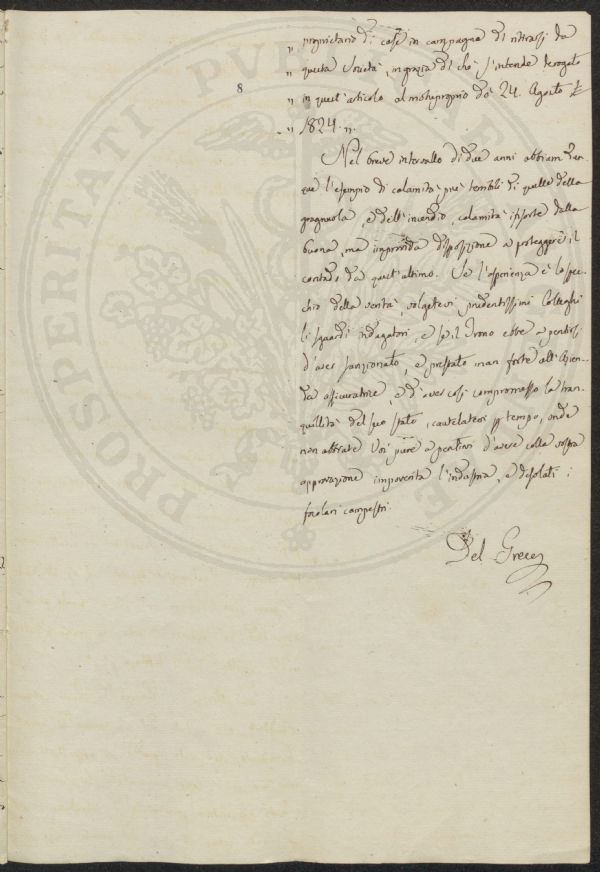 „ proprietario di case in campagna di ritrarsi da
„ questa Società, in grazia di che s'intende derogato
8
„ in quest'articolo al motuproprio de' 24. Agosto
„ 1824. „
Nel breve intervallo di due anni abbiam dun-
que l'esempio di calamità più terribili di quelle della
gragnuola, e dell'incendio, calamità insorte dalla
buona, ma improvvida disposizione a proteggere il
contado da quest'ultimo. Se l'esperienza è lo spec-
chio della verità, volgetevi prudentissimi Colleghi
li sguardi indagatori, e se il Trono ebbe a pentirsi
d'aver sanzionato, e prestato man forte all'Azien-
da assicuratrice, e d'aver così compromesso la tran-
quillità del suo stato, cautelatevi per tempo, onde
non abbiate Voi pure a pentirvi d'avere colla vostra
approvazione impoverita l'industria, e desolati i
focolari campestri.
Del Greco
PROSPERITATI PVBLICAE